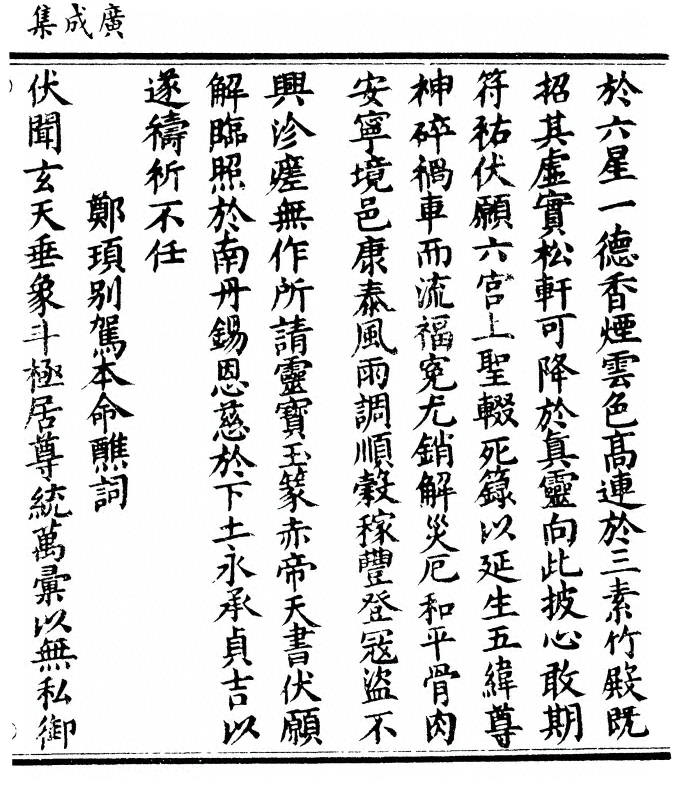 廣成集
於六星一德香煙雲色高連於三素竹殿既
招其虛實松軒可降於真靈向此披心敢期
符祐伏願六宮上聖輟死籙以延生五緯尊
神碎禍車而流福寃尤銷解災厄和平骨肉
安寧境邑康泰風雨調順糓稼豐登冦盜不
興沴瘥無作所請靈寶玉篆赤帝天書伏願
解臨照於南丹錫恩慈於下土永承貞吉以
遂禱祈不任
鄭頊别駕本命醮詞
伏聞玄天垂象斗極居尊統萬彙以無私御